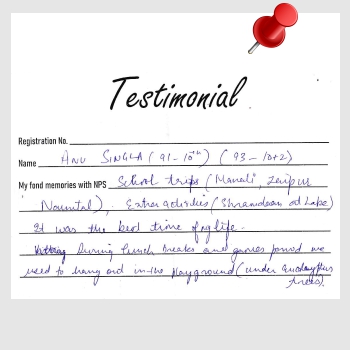 Testimonial
Registration No.
Name ANU SINGLA (91-10th) (93-10+2)
My fond memories with NPS School trips (Manali, Jaipur
Nainital), Extra activities (Shramdaan at Lake)
It was the best time of my life.
During lunch breaks and games period we
used to hang out in the playground (under eucalyptus
trees).